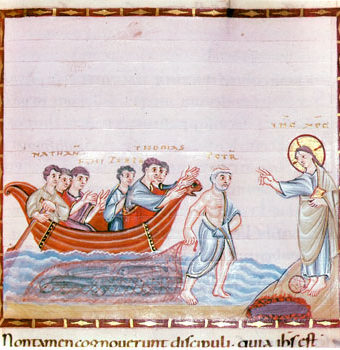 IHC XPC
THOMAS
NATHAN
FILII ZEBEDEI
PETR
Non tamen cognoverunt discipuli · quia ihs est